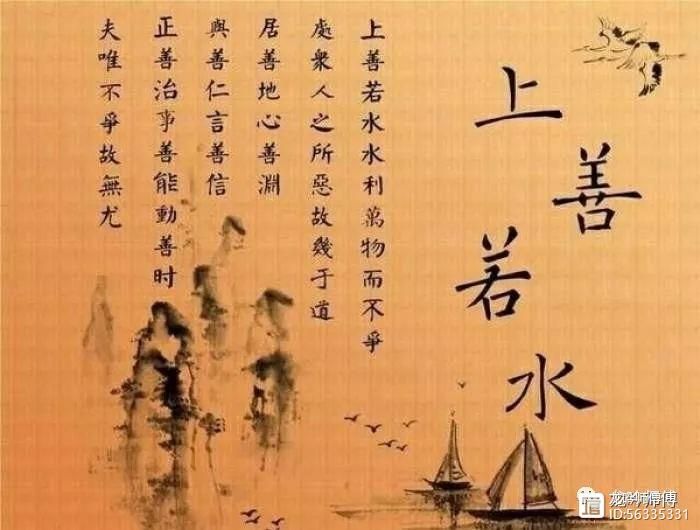 上善若水
上善若水水利萬物而不爭
處衆人之所惡故幾于道
居善地心善淵
與善仁言善信
正善治事善能動善时
夫唯不爭故無尤
ID:56335331